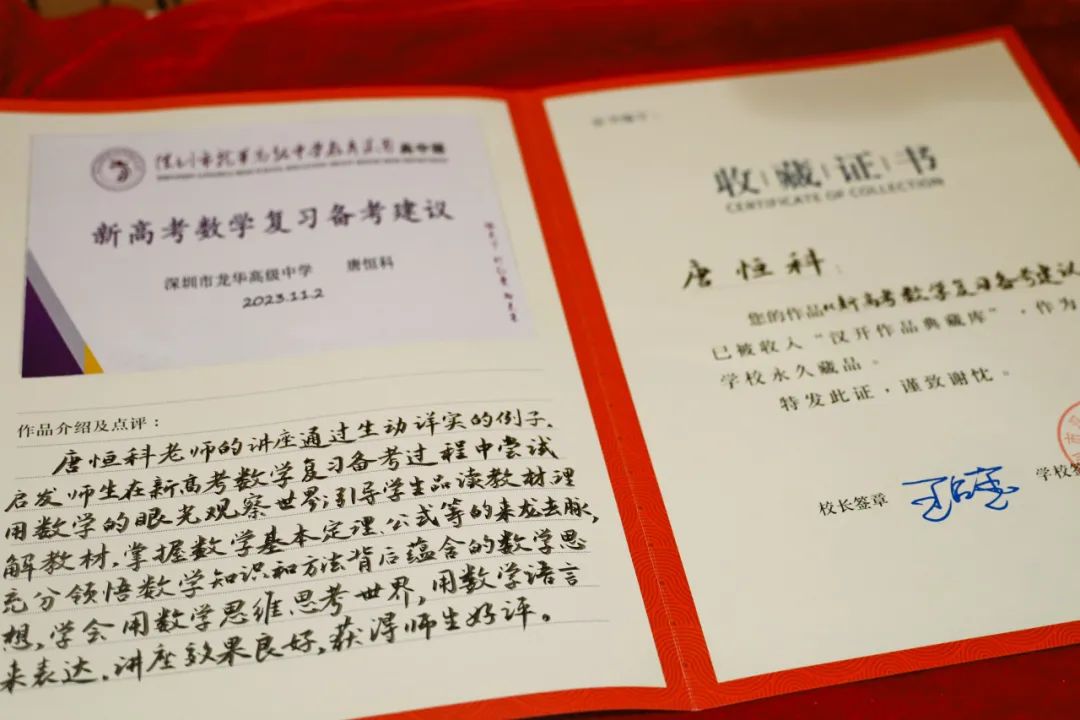 深圳市龙华高级中学教育集团 高中部
新高考数学复习备考建议
深圳市龙华高级中学 唐恒科
2023.11.2
作品介绍及点评：
唐恒科老师的讲座通过生动详实的例子.
启发师生在新高考数学复习备考过程中尝试
用数学的眼光观察世界;引导学生品读教材理
解教材.掌握数学基本定理.公式等的来龙去脉,
充分领悟数学知识和方法背后蕴含的数学思
想,学会用数学思维思考世界,用数学语言
来表达.讲座效果良好,获得师生好评。
收藏证书
CERTIFICATE OF COLLECTION
唐恒科：
您的作品《新高考数学复习备考建议
已被收入“汉开作品典藏库”，作为
学校永久藏品。
特发此证，谨致谢忱。
校长签章
学校签